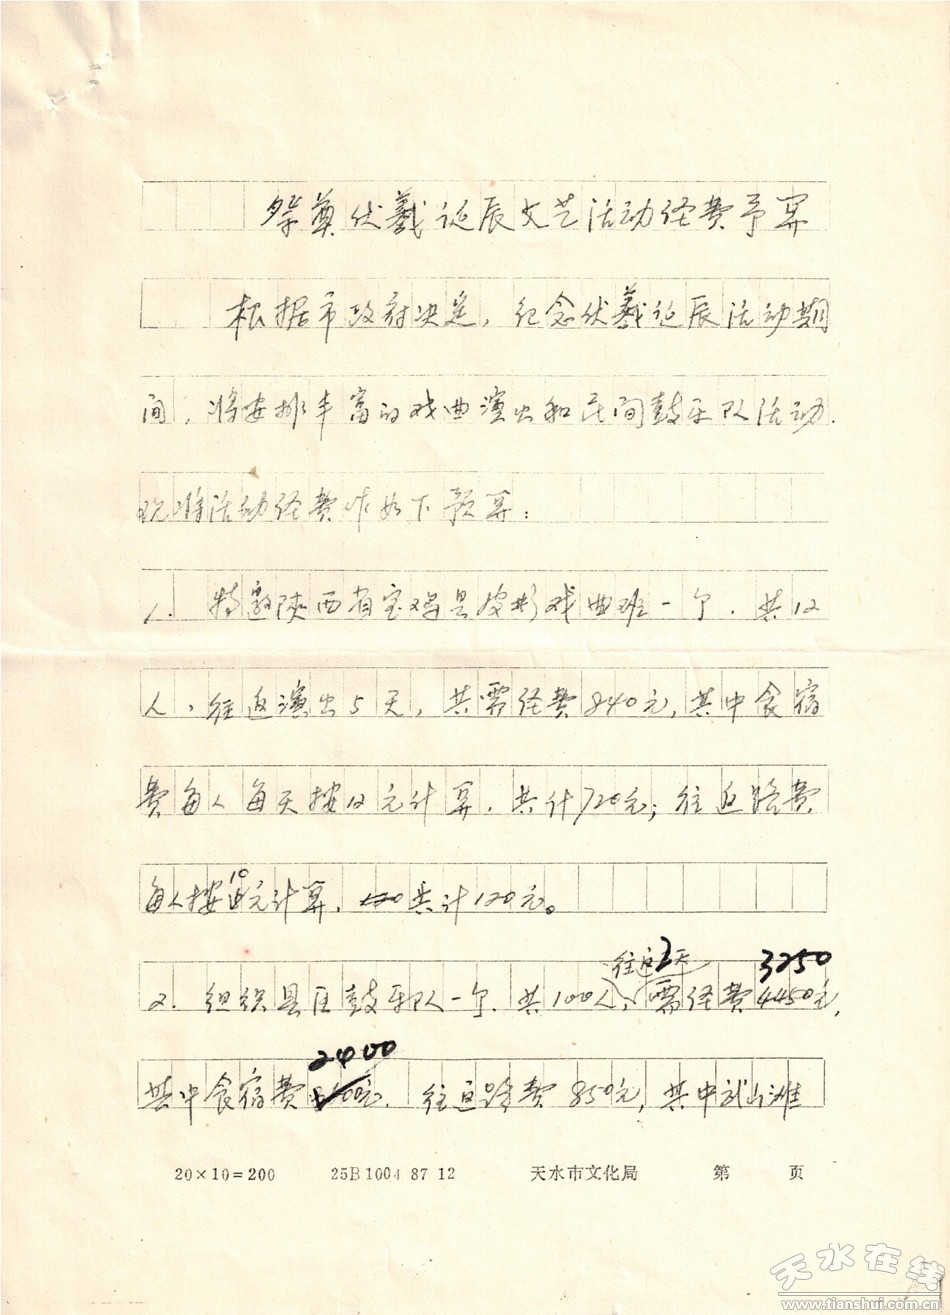 祭奠伏羲诞辰文艺活动经费予算
根据市政府决定,纪念伏羲诞辰活动期
间,将安排丰富的戏曲演出和民间鼓乐队活动.
现将活动经费作如下预算:
1. 特邀陕西省宝鸡县皮影戏曲班一个.共12
人,往返演出5天,共需经费840元,其中食宿
费每人每天按12元计算.共计720元;往返路费
每人按10元计算,共计120元。
2. 组织县区鼓乐队一个.共100人,往返3天需经费3250 4450元,
其中食宿费2400元.往返路费850元,其中武山滩
20×10=200 25B 1004 87 12 天水市文化局 第 页
天水在线
www.tianshui.com.cn